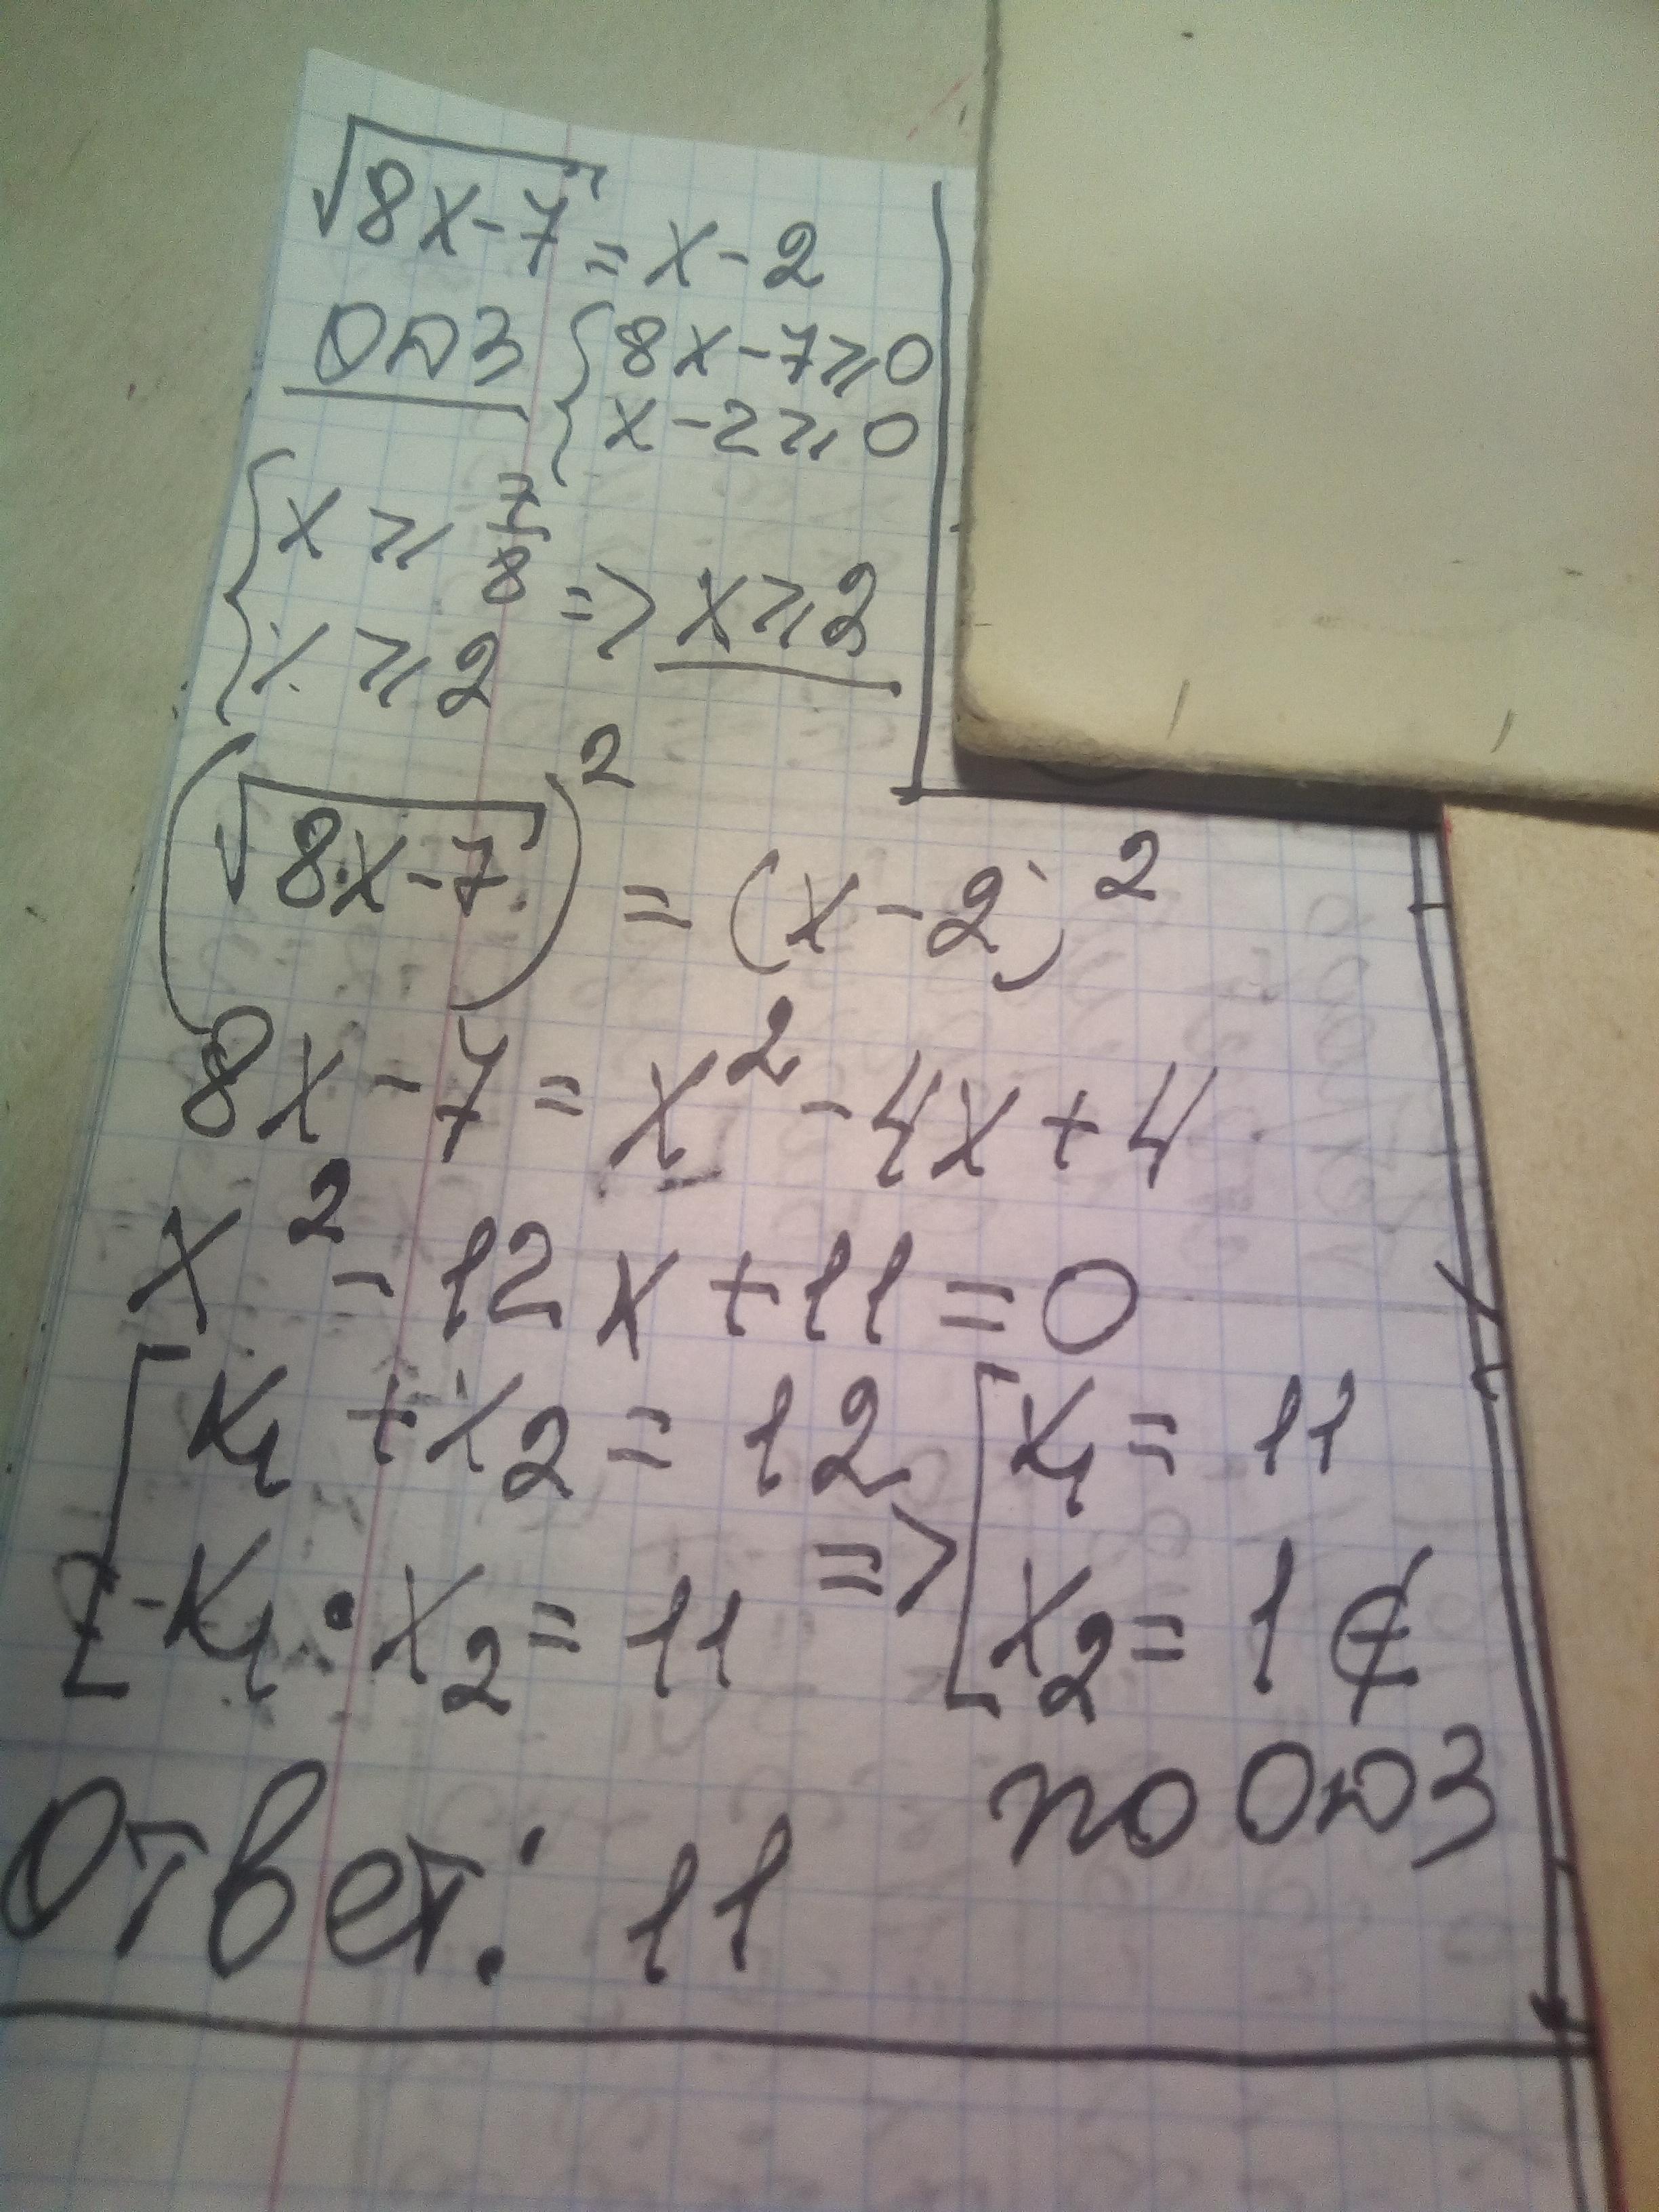 √(8x-7) = x-2
ОДЗ { 8x-7⩾0
x-2⩾0
{ x ⩾ 7/8
x ⩾ 2 => x⩾2
(√(8x-7))² = (x-2)²
8x-7 = x²-4x+4
x²-12x+11=0
[ x₁+x₂=12 => [ x₁= 11
x₁·x₂=11 x₂= 1 ∉
по ОДЗ
Ответ: 11